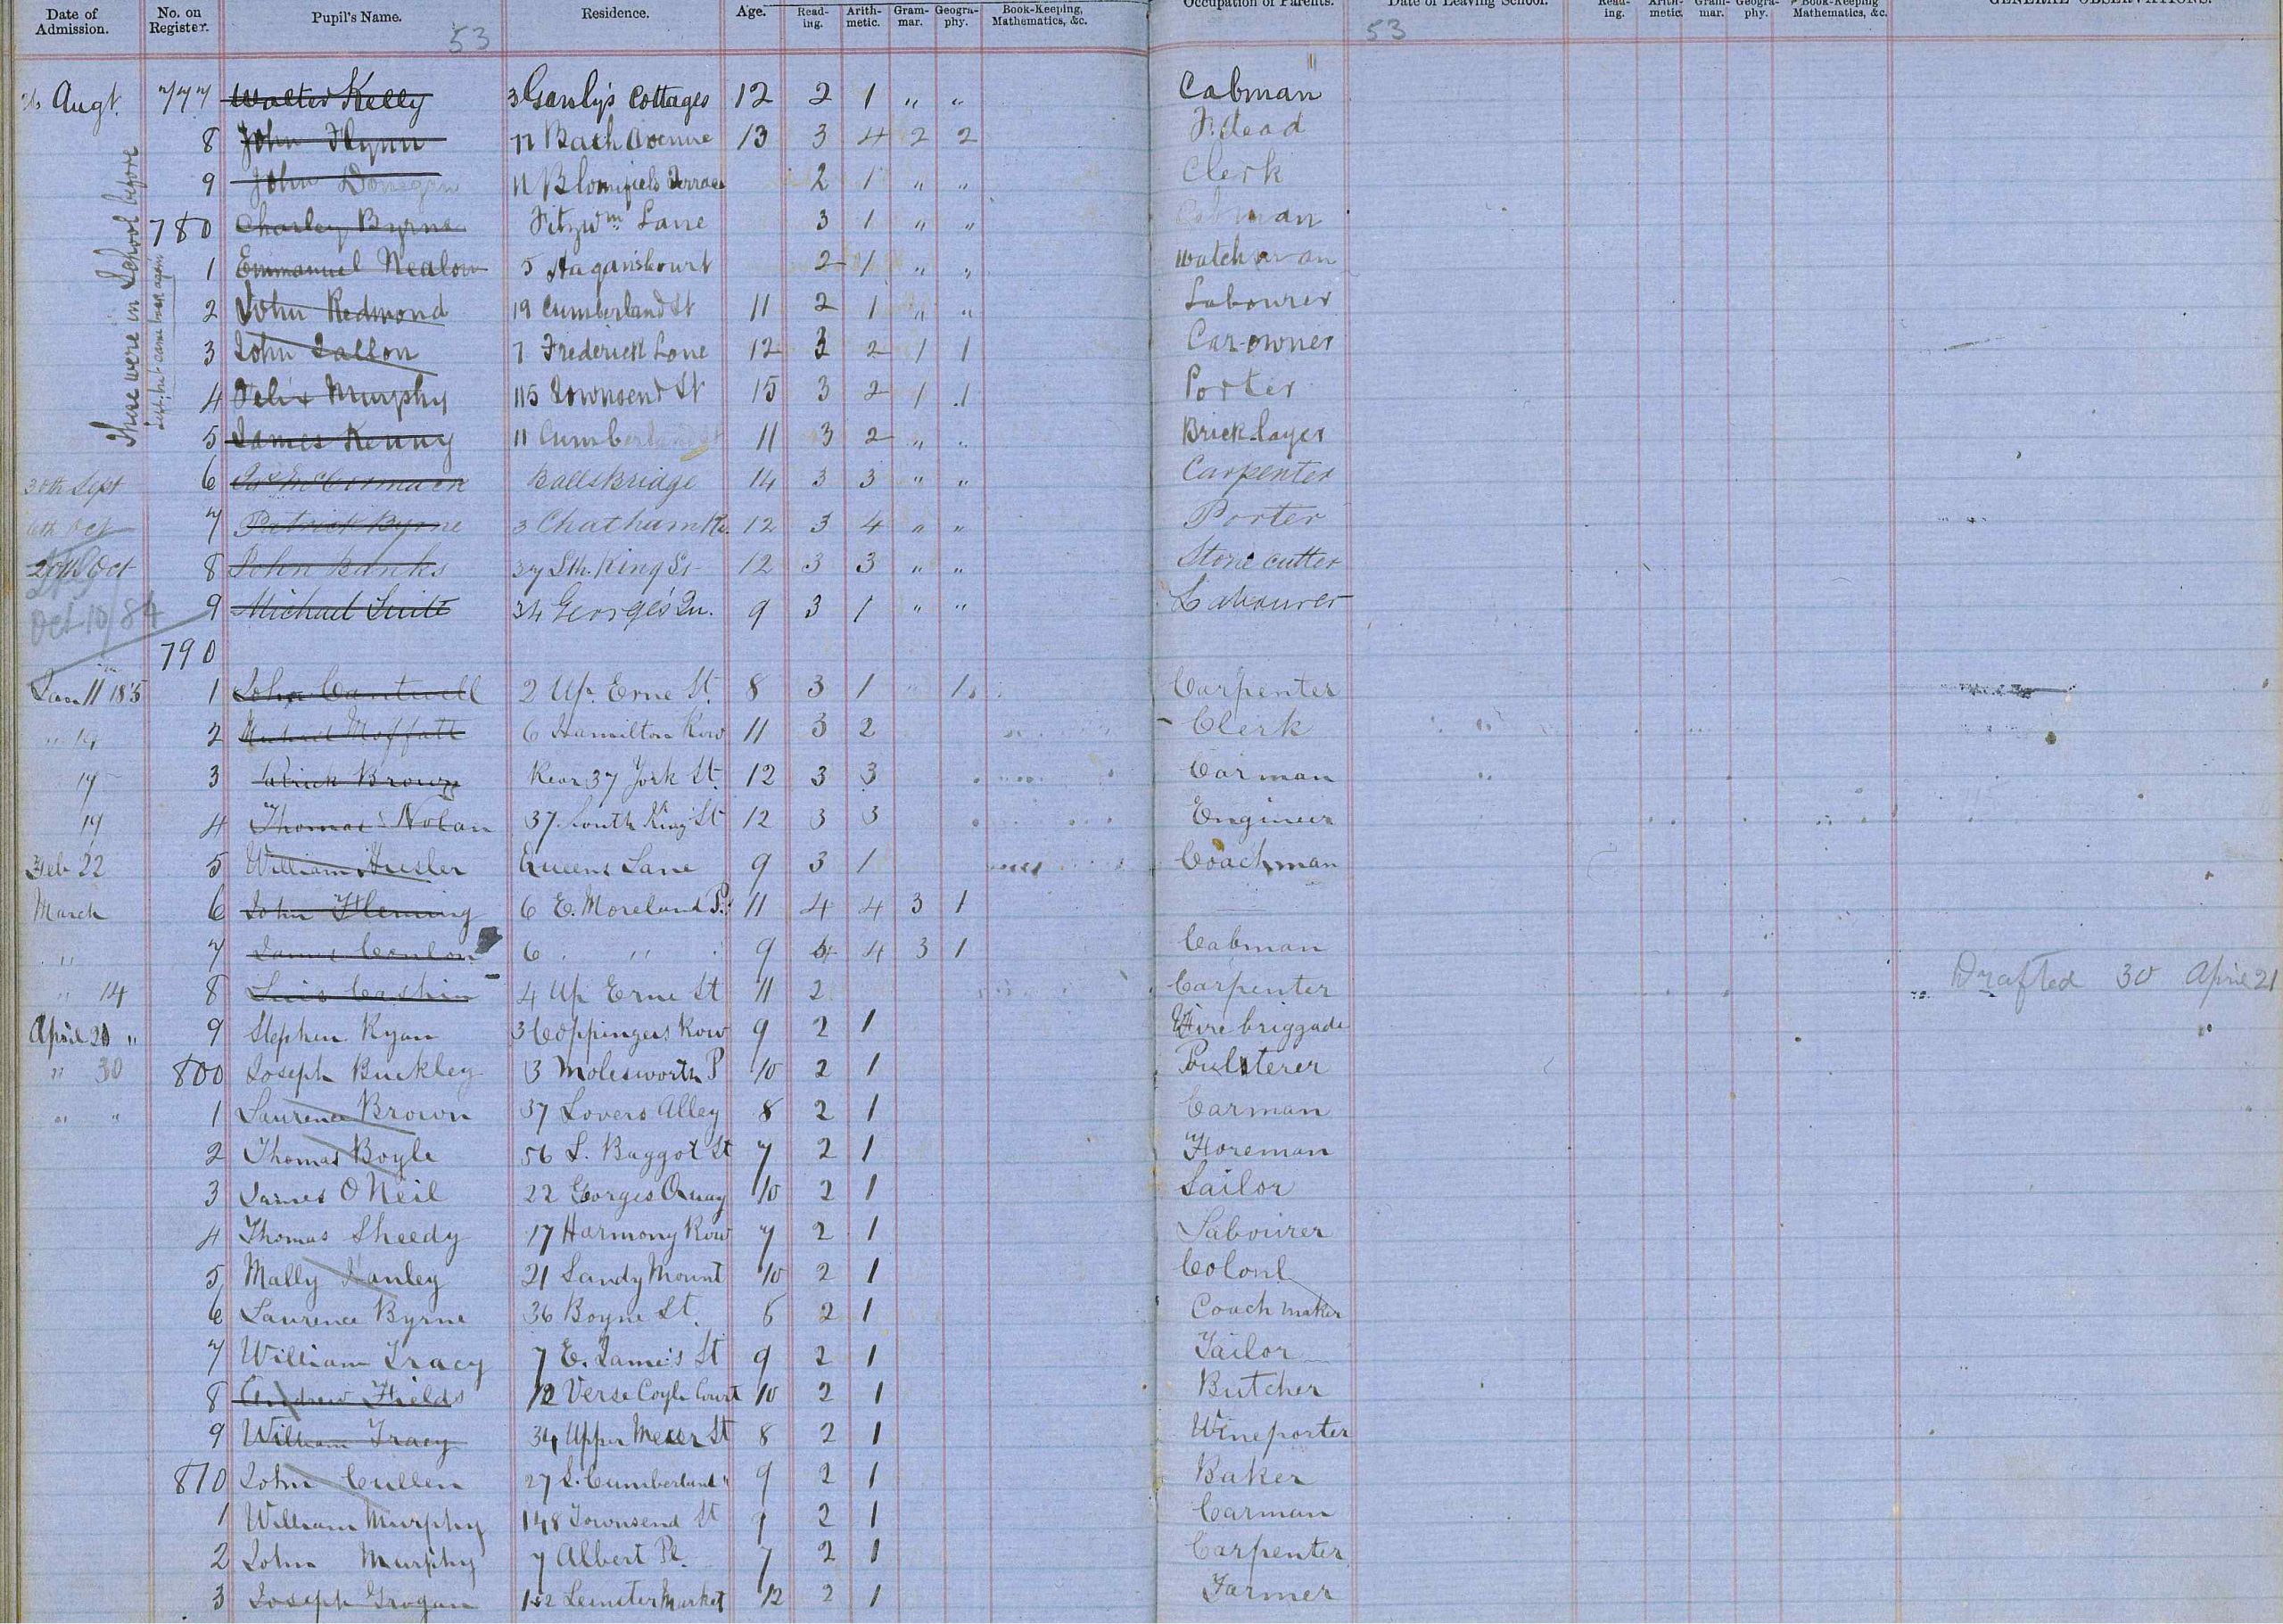 Date of Admission. No. on Register. Pupil's Name. Residence. Age. Read-ing. Arith-metic. Gram-mar. Geogra-phy. Book-Keeping, Mathematics, &c. Occupation of Parents. Date of Leaving School. Read-ing. Arith-metic. Gram-mar. Geogra-phy. Book-Keeping Mathematics, &c. GENERAL OBSERVATIONS.
53 53
Augt. 777 Walter Kelly 3 Cottages 12 2 1 " " Cabman
8 John Flynn 17 Bath Avenue 13 3 4 2 2 F. dead
9 John Donegan 11 Blomfield Terrace 2 1 " " Clerk
780 Charley Byrne Fitzwm Lane 3 1 " " Cabman
1 Emmanuel Nealon 5 Haganscourt 2 1 " " Watchman
2 John Redmond 19 Cumberland St 11 2 1 " " Labourer
3 John Lallon 7 Frederick Lane 12 3 2 1 1 Car-owner
4 Felix Murphy 115 Townsend St 15 3 2 1 1 Porter
5 James Kenny 11 Cumberland St 11 3 2 " " Bricklayer
These were in School before
but came back again
30th Sept 6 McCormack Ballsbridge 14 3 3 " " Carpenter
6th Oct 7 Patrick Byrne 3 Chatham Row 12 3 4 " " Porter
20th Oct 8 John Banks 37 Sth. King St 12 3 3 " " Stone cutter
Oct. 10/84 9 Michael 34 George's Qu. 9 3 1 " " Labourer
790
Jan 11 185 1 John Cantwell 2 Up. Erne St. 8 3 1 1 Carpenter
" 14 2 Michael Moffatt 6 Hamilton Row 11 3 2 Clerk
17 3 Patrick Brown Rear 37 York St. 12 3 3 Carman
17 4 Thomas Nolan 37 South King St 12 3 3 Engineer
Feb 22 5 William Husler Queens Lane 9 3 1 Coachman
March 6 John Fleming 6 E. Moreland P. 11 4 4 3 1
" 7 James Conlon 6 " 9 4 4 3 1 Cabman
" 14 8 Luis Cashin 4 Up Erne St 11 2 Carpenter Drafted 30 April 21
April 20 " 9 Stephen Ryan 3 Coppingers Row 9 2 1 Fire briggade
" 30 800 Joseph Buckley 13 Molesworth P 10 2 1 Poulterer
" " 1 Laurence Brown 37 Lovers Alley 8 2 1 Carman
2 Thomas Boyle 56 L. Baggot St 7 2 1 Foreman
3 James O Neil 22 Gorges Quay 10 2 1 Sailor
4 Thomas Sheedy 17 Harmony Row 7 2 1 Labourer
5 Mally Hanley 21 Sandy Mount 10 2 1 Colonl
6 Laurence Byrne 36 Boyne St. 8 2 1 Coach maker
7 William Tracy 7 E. James St 9 2 1 Tailor
8 Andrew Fields 12 Verse Coyle Court 10 2 1 Butcher
9 William Tracy 34 Upper Mercer St 8 2 1 Wineporter
810 John Cullen 27 S. Cumberland " 9 2 1 Baker
1 William Murphy 148 Townsend St 9 2 1 Carman
2 John Murphy 7 Albert Pl. 7 2 1 Carpenter
3 Joseph Grogan 152 Leinster Market 12 2 1 Farmer